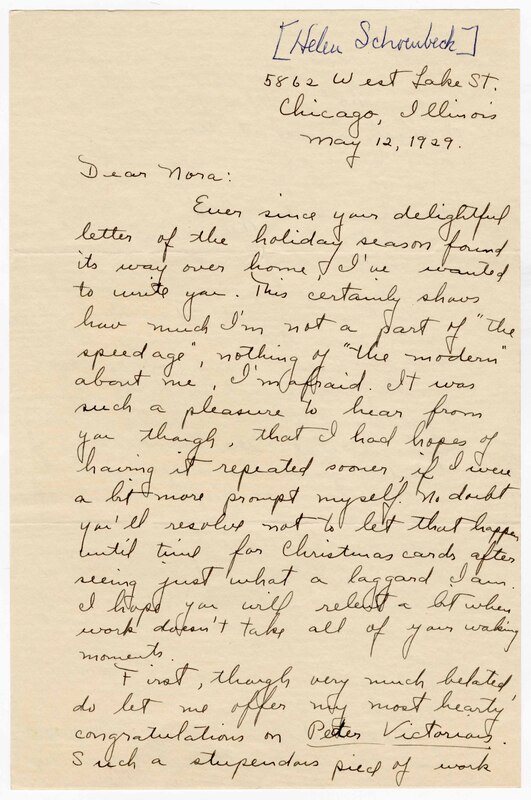 [Helen Schoenbeck]
5862 West Lake St.
Chicago, Illinois
May 12, 1929.
Dear Nora:
Ever since your delightful
letter of the holiday season found
its way over home, I've wanted
to write you. This certainly shows
how much I'm not a part of "the
speed age", nothing of "the modern"
about me, I'm afraid. It was
such a pleasure to hear from
you though, that I had hopes of
having it repeated sooner, if I were
a bit more prompt myself. No doubt
you'll resolve not to let that happen
until time for Christmas cards after
seeing just what a laggard I am.
I hope you will relent a bit when
work doesn't take all of your waking
moments.
First, though very much belated,
do let me offer my most hearty
congratulations on Peter Victorious.
Such a stupendous pied of work